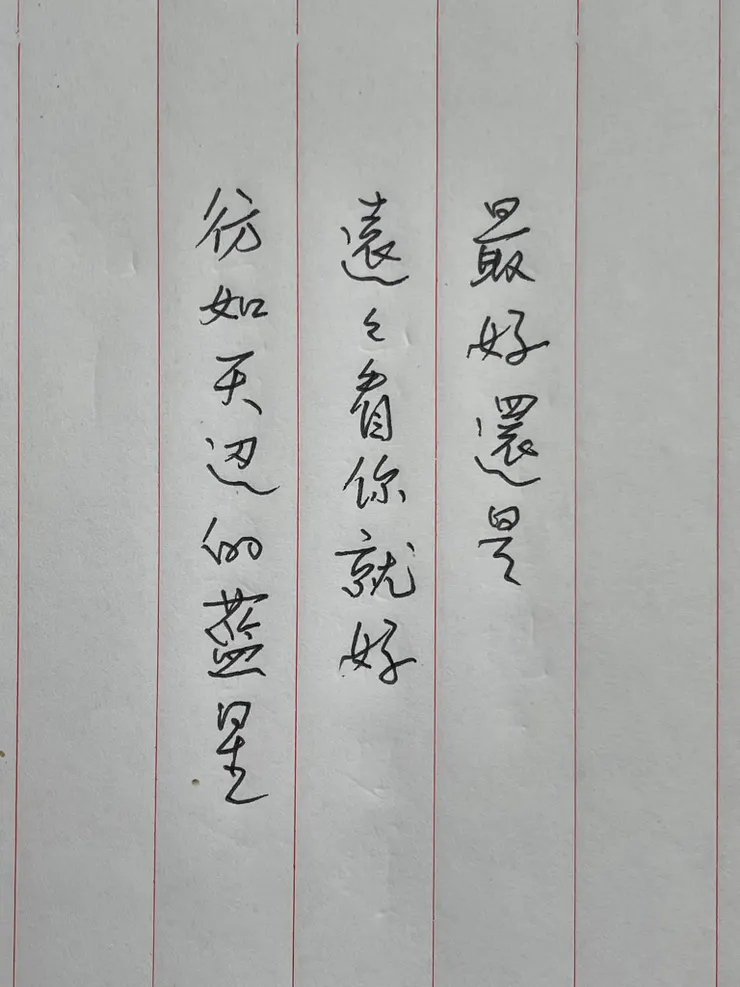 最好還是
遠々看你就好
彷如天边的藍星